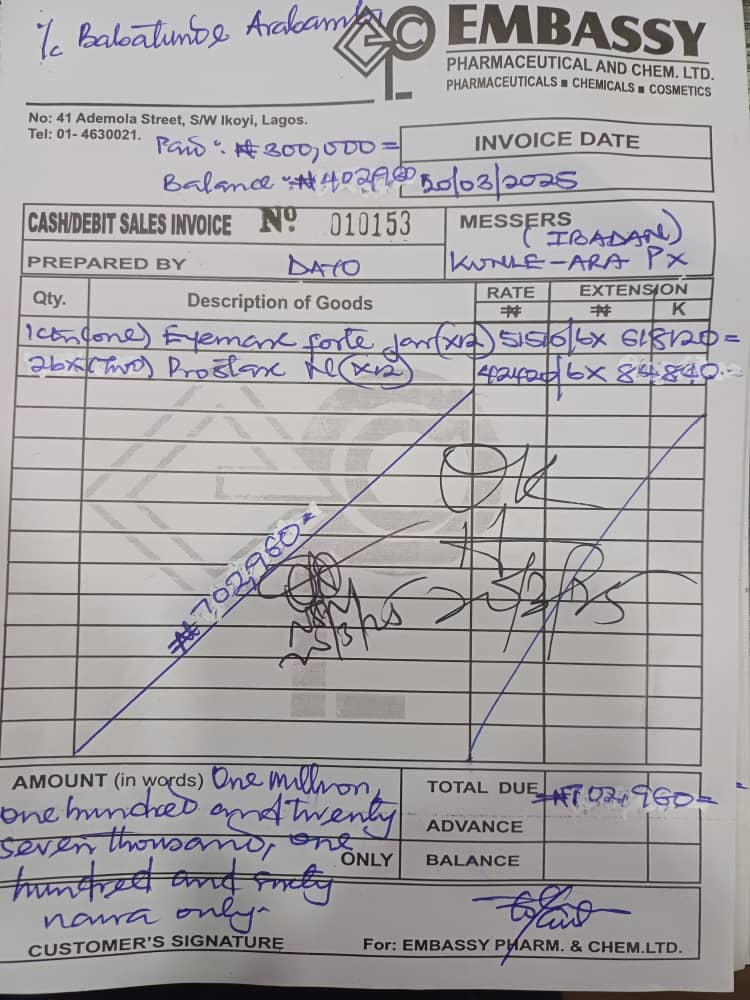 ℅ Babatunde Arabambi
EMBASSY
PHARMACEUTICAL AND CHEM. LTD.
PHARMACEUTICALS ■ CHEMICALS ■ COSMETICS
No: 41 Ademola Street, S/W Ikoyi, Lagos.
Tel: 01- 4630021.
Paid: ₦300,000=
Balance: ₦402,960
INVOICE DATE
20/03/2025
CASH/DEBIT SALES INVOICE Nº 010153
PREPARED BY DAYO
MESSERS (IBADAN)
KUNLE-ARA PX
Qty. Description of Goods RATE EXTENSION
₦ ₦ K
1ctn(one) Eyemax forte Jar(x12) 51510/bx 618120=
2bx(two) Prostax NE(x12) 42420/bx 84840=
OK
₦702,960=
25/3/25
25/3/25
AMOUNT (in words) One million,
one hundred and twenty
seven thousand, one
hundred and sixty
naira only-
ONLY
TOTAL DUE ₦702,960=
ADVANCE
BALANCE
CUSTOMER'S SIGNATURE
For: EMBASSY PHARM. & CHEM.LTD.